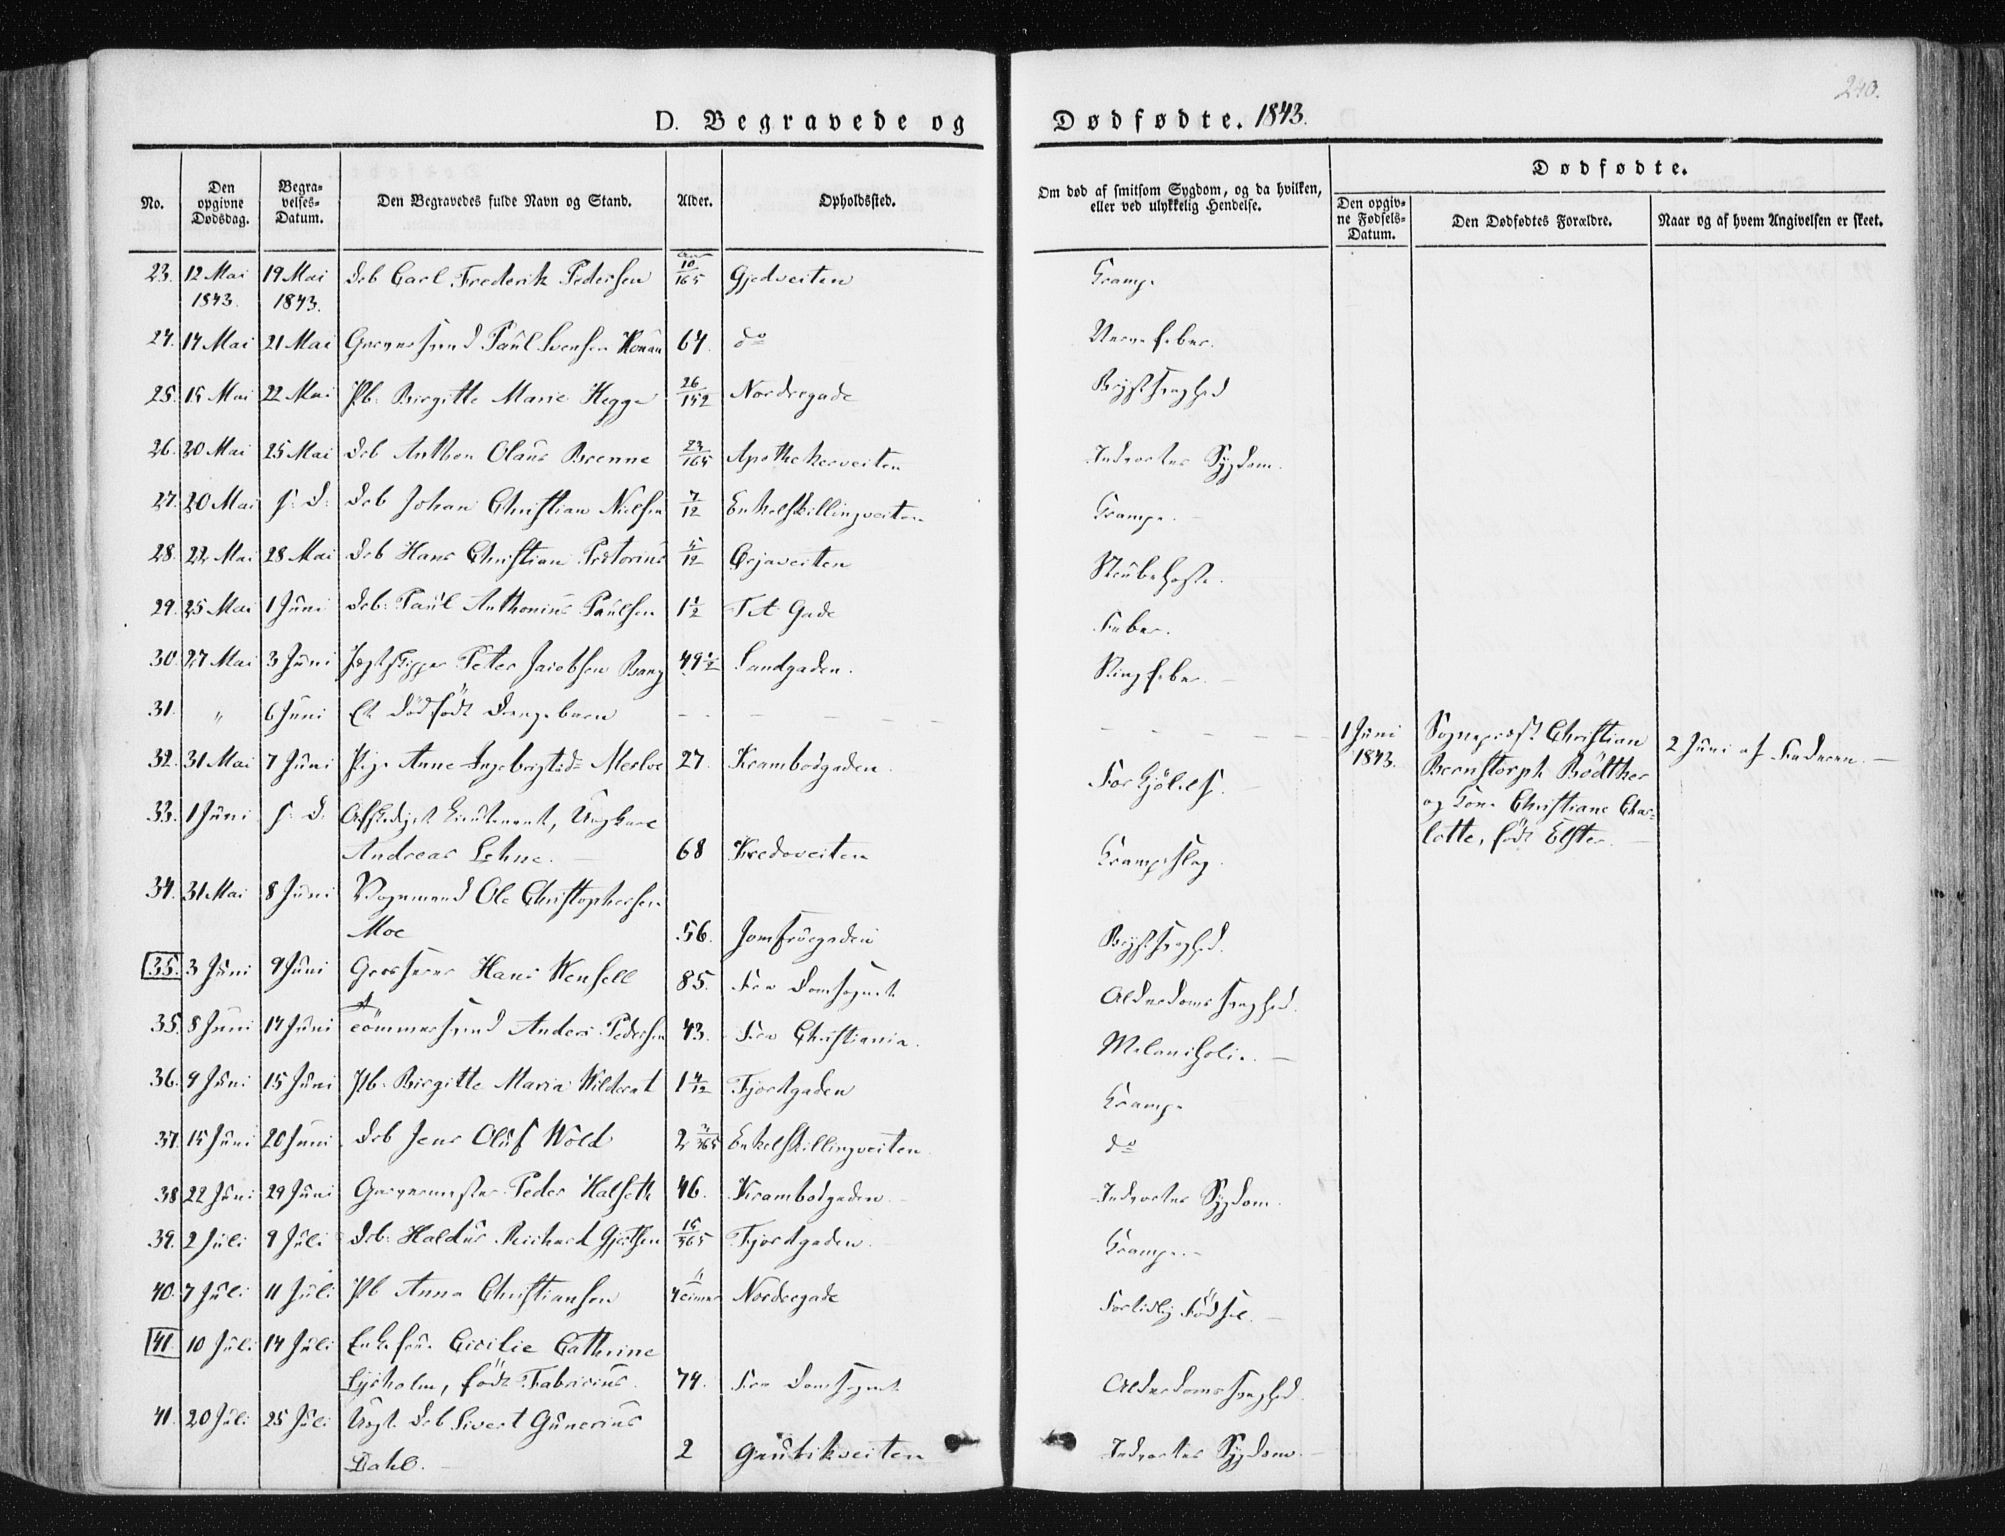 240.
D. Begravede og Dødfødte. 1843.
No.
Den opgivne Dødsdag.
Begravelses-Datum.
Den Begravedes fulde Navn og Stand.
Alder.
Opholdssted.
Om død af smitsom Sygdom, og da hvilken, eller ved ulykkelig Hendelse.
Dødfødte.
Den opgivne Fødsels-Datum.
Den Dødfødtes Forældre.
Naar og af hvem Angivelsen er skeet.
23. 12 Mai 1843. 19 Mai 1843. Db Carl Frederik Pedersen 10/365 Gjedveiten Krampe
24. 14 Mai 21 Mai Garversvend Paul Svensen 64. do Nervefeber.
25. 15 Mai 22 Mai Pb. Birgitte Marie Hegge 26/152 Nordregade Brystsvaghed
26. 20 Mai 25 Mai Db Anthon Olaus Brenne 23/365 Apothekerveiten Indvortes Sygdom.
27. 20 Mai s. D. Db Johan Christian Nielsen 7/12 Enkelskillingveiten Krampe.
28. 22 Mai 28 Mai Db Hans Christian Pretorius 5/12 Ørjaveiten Strubehoste.
29. 25 Mai 1 Juni Db. Paul Anthonius Paulsen 1 1/2 T. A. Gade Feber.
30. 27 Mai 3 Juni Jagtskipper Peter Jacobsen Bang 49 1/2 Sandgaden.
31. " 6 Juni Et dødfødt Drengebarn
1 Juni 1843. Sognepræst Christian Bernstorph Bødtker og Kone Christiane Charlotte, født Elster. 2 Juni af Faderen.
32. 31 Mai 7 Juni Pige Anne Ingebrigtsd. 27. Krambodgaden. Forkjølels.
33. 1 Juni s. D. Afskediget Lieutenant, Ungkarl
Andreas Lehne. 68 Kredoveiten Krampeslag.
34. 31 Mai 8 Juni Vognmand Ole Christophersen
Moe 56. Jomfruegaden Brystsvaghed.
35. 3 Juni 9 Juni Grosserer Hans Wensell 85. Fra Domsognet Alderdomssvaghed.
35. 8 Juni 14 Juni Tømmersvend Anders Pedersen 43. Fra Christiania. Melancholie.
36. 9 Juni 15 Juni Pb. Birgitte Maria Wilderat 1 4/12 Fjordgaden Krampe
37. 15 Juni 20 Juni Db Jens Oluf Wold 2 3/365 Enkelskillingveiten do
38 22 Juni 29 Juni Garvermester Peder Halseth 46. Krambodgaden. Indvortes Sygdom.
39. 2 Juli 9 Juli Db. Haldus Richard Gjertsen 15/365 Fjordgaden. Krampe.
40. 7 Juli 11 Juli Pb Anna Christiansen 4 Timer Nordregade Fortidlig Fødsel.
41. 10 Juli 14 Juli Enkefrue Cicilie Cathrine
Lysholm, født Fabricius. 74. Fra Domsognet Alderdomssvaghed.
41. 20 Juli 25 Juli Uægt. Db Sivert Gunerius
Dahl. 2 Gaubekveiten Indvortes Sygdom.